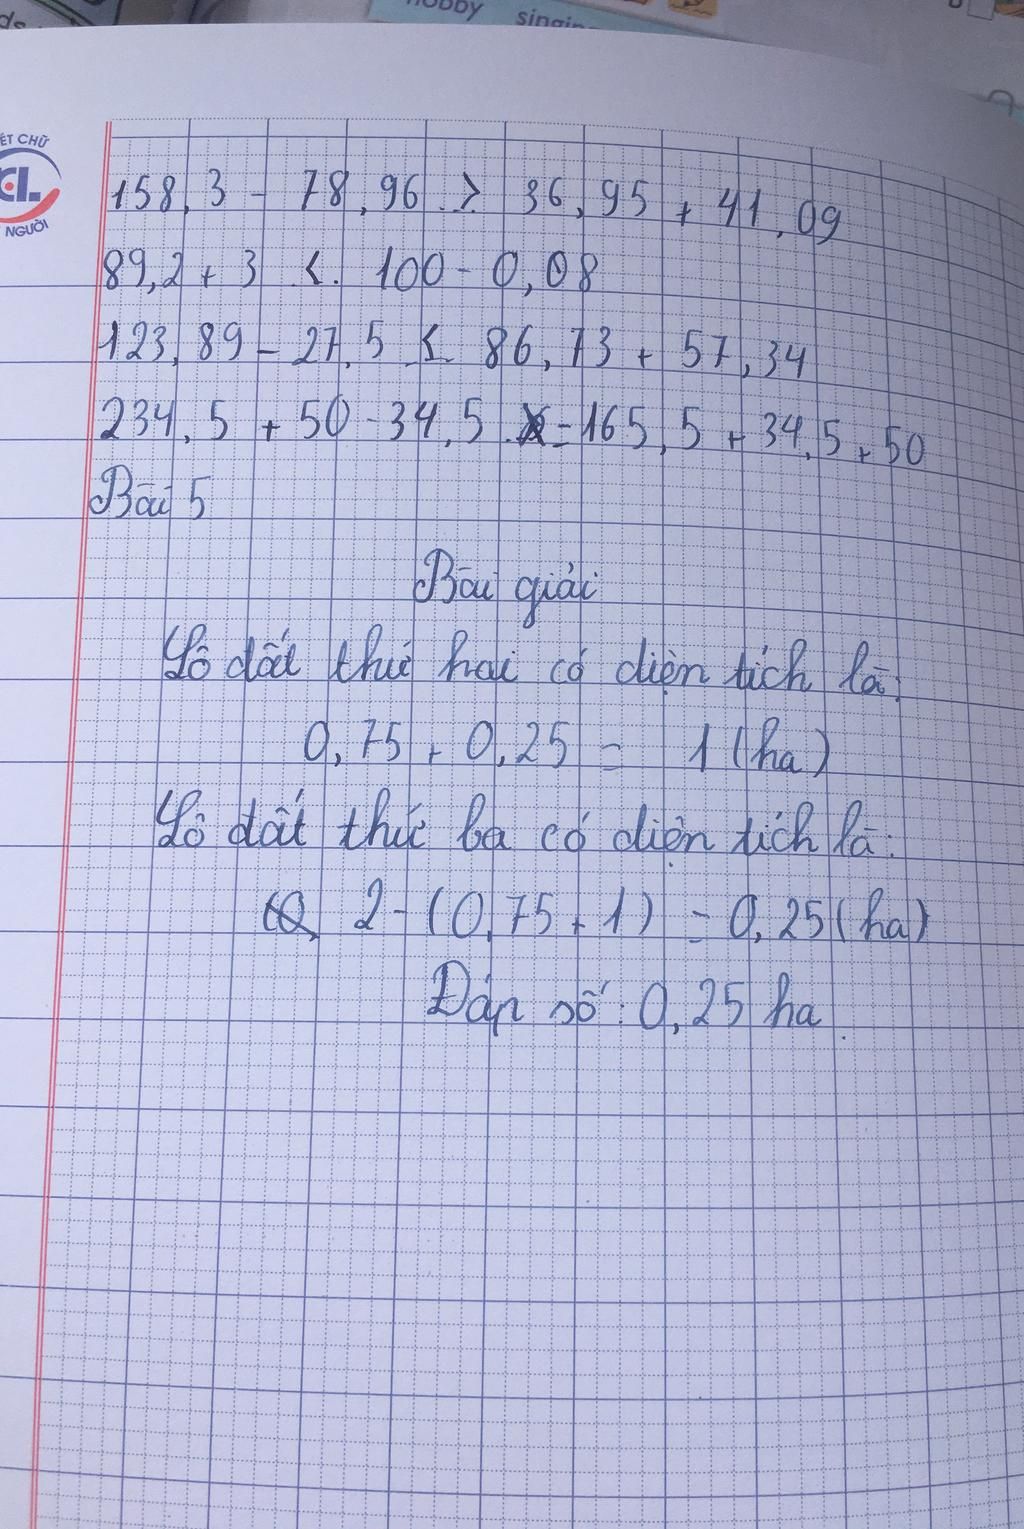 hobby singin
ẾT CHỮ
CL
NGƯỜI
158,3 - 78,96 > 36,95 + 41,09
89,2 + 3 < 100 - 0,08
123,89 - 27,5 < 86,73 + 57,34
234,5 + 50 - 34,5 = 165,5 + 34,5 + 50
Bài 5
Bài giải
Lô đất thứ hai có diện tích là:
0,75 + 0,25 = 1 (ha)
Lô đất thứ ba có diện tích là:
2 - (0,75 + 1) = 0,25 (ha)
Đáp số: 0,25 ha